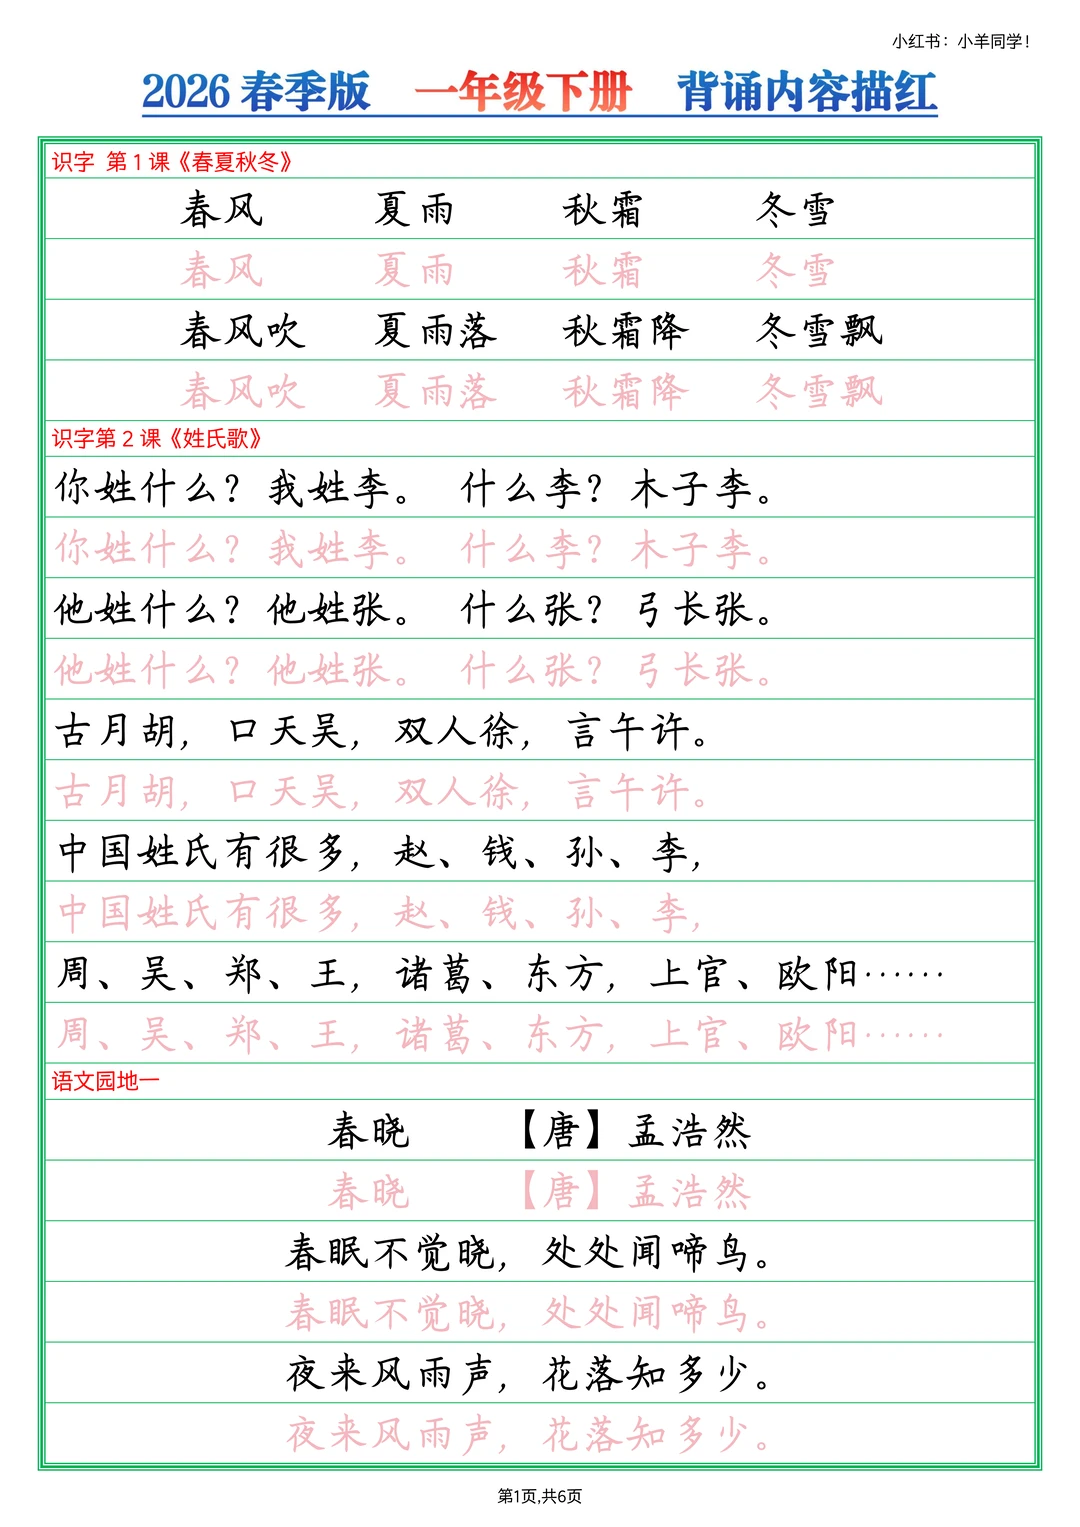 小红书：小羊同学！
2026 春季版 一年级下册 背诵内容描红
识字 第 1 课《春夏秋冬》
春风 夏雨 秋霜 冬雪
春风 夏雨 秋霜 冬雪
春风吹 夏雨落 秋霜降 冬雪飘
春风吹 夏雨落 秋霜降 冬雪飘
识字第 2 课《姓氏歌》
你姓什么？我姓李。 什么李？木子李。
你姓什么？我姓李。 什么李？木子李。
他姓什么？他姓张。 什么张？弓长张。
他姓什么？他姓张。 什么张？弓长张。
古月胡，口天吴，双人徐，言午许。
古月胡，口天吴，双人徐，言午许。
中国姓氏有很多，赵、钱、孙、李，
中国姓氏有很多，赵、钱、孙、李，
周、吴、郑、王，诸葛、东方，上官、欧阳……
周、吴、郑、王，诸葛、东方，上官、欧阳……
语文园地一
春晓 【唐】孟浩然
春晓 【唐】孟浩然
春眠不觉晓，处处闻啼鸟。
春眠不觉晓，处处闻啼鸟。
夜来风雨声，花落知多少。
夜来风雨声，花落知多少。
第1页,共6页